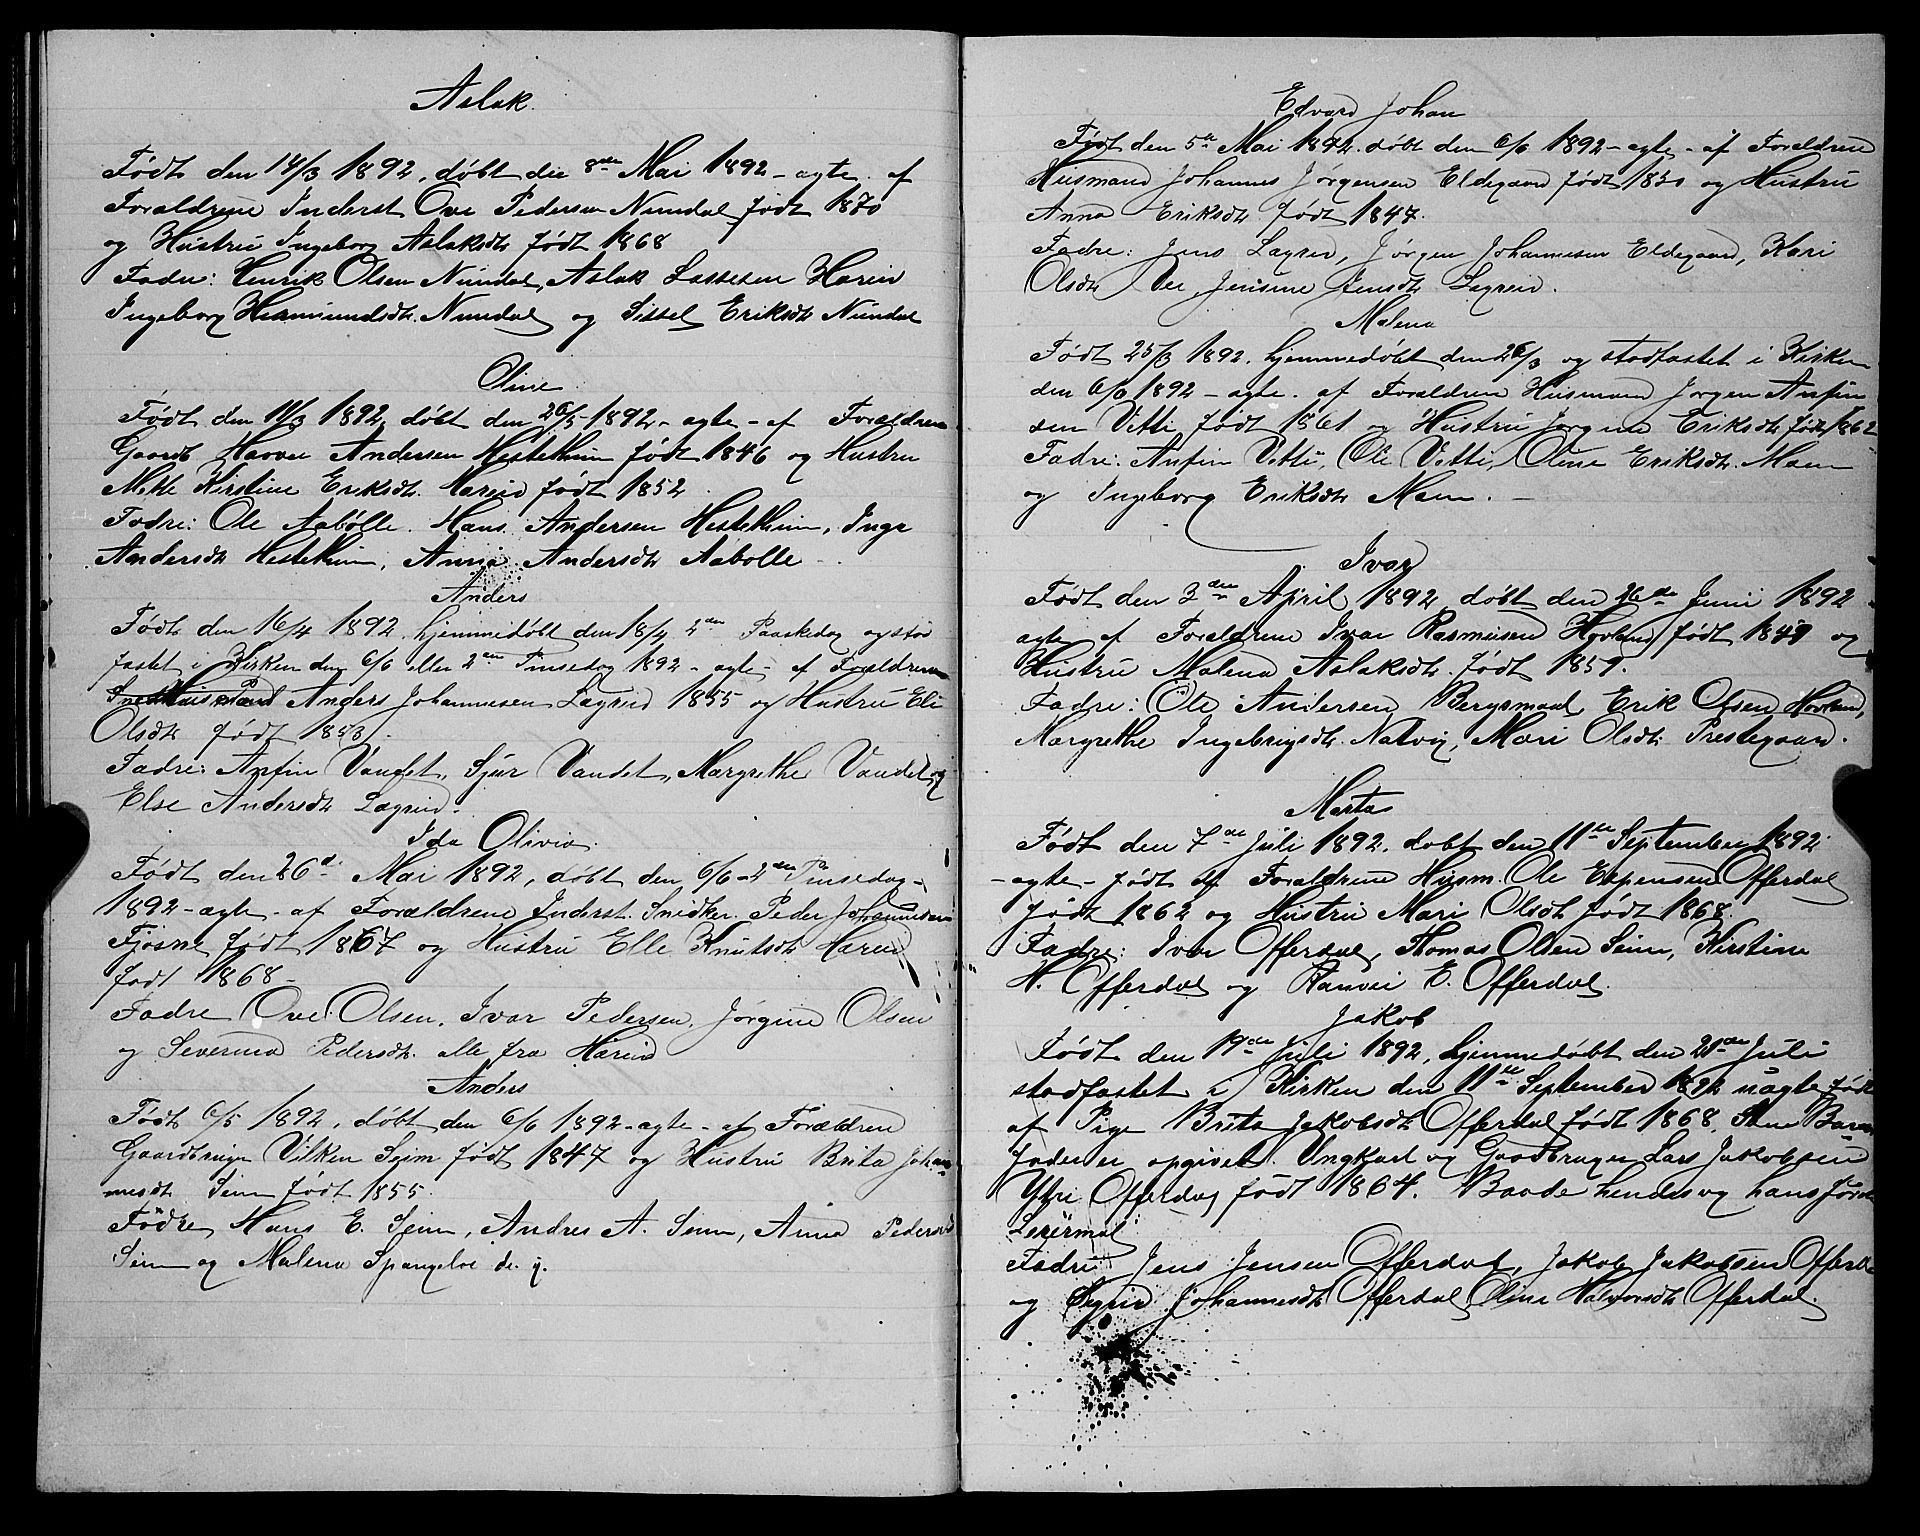 Aslak.
Født den 14/3 1892, døbt die 8de Mai 1892 - ægte af
Forældrene Inderst Ove Pedersen Nundal født 1870
og Hustru Ingeborg Aslaksdt født 1868
Fadre: Henrik Olsen Nundal, Aslak Lassesen Hæreid
Ingeborg Hermundsdt. Nundal og Sissel Eriksdt Nundal
Oline
Født den 11/3 1892, døbt den 26/5 - 1892 - ægte - af Forældrene
Gaardb Anders Hestethun født 1846 og Hustru
Mette Kirstine Eriksdt. Hæreid født 1852
Fadre: Ole Aabølle. Hans Andersen Hestethun, Inge
Andersdt Hestethun, Anna Andersdt Aabølle -
Anders
Født den 16/4 1892 hjemmedøbt den 18/4 2den Paaskedag og stad
fæstet i Kirken den 6/6 eller 2den Pinsedag 1892 - ægte - af Forældrene
Anders Johannesen Lægreid 1855 og Hustru Eli
Olsdt født 1853.
Fadre: Anfin Vandet, Sjur Vandet, Margrethe Vandet og
Else Andersdt Lægreid.
Ida Olivia.
Født den 26de Mai 1892, døbt den 6/6 - 2den Pinsedag -
1892 - ægte - af Forældrene Inderst. Snidker Peder Johannesen
Fjøsne født 1867 og Hustru Elle Knutsdt Hæreid
født 1868 -
Fadre Ove Olsen, Ivar Pedersen, Jørgine Olsen
og Severina Pedersdt. alle fra Hæreid
Anders
Født 6/5 1892, døbt den 6/6 1892 - ægte - af Forældrene
Gaardbruger Vilken Seim født 1847 og Hustru Brita Johan
nesdt Seim født 1855.
Fadre, Hans E. Seim, Andres A. Seim, Anna Pedersdt
Seim og Malena Spangeloe de. g.
Edvard Johan
Født den 5te Mai 1892. døbt den 6/6 1892 - ægte - af Forældrene
Husmand Johannes Jørgensen Eldegaard født 1830 og Hustru
Anna Eriksdt født 1847.
Fadre: Jens Lægreid, Jørgen Johannesen Eldegaard, Kari
Olsdt Vee, Jensine Jensdt Lægreid.
Malena
Født 25/3 1892, hjemmedøbt den 26/3 og stadfæstet i Kirken
den 6/6 1892 - ægte - af Forældrene Husmand Jørgen Anfin
sen Vetti født 1861 og Hustru Jørgine Eriksdt født 1862
Fadre: Anfin Vetti, Ole Vetti, Oline Eriksdt. Moen
og Ingeborg Eriksdt Moen. -
Ivar
Født den 3die April 1892 døbt den 26de Juni 1892
ægte af Forældrene Ivar Rasmusen Hovland født 1849 og
Hustru Malena Aslaksdt. født 1851.
Fadre: Ole Andersen Bergsmaal, Erik Olsen Hovland,
Margrethe Ingebrigsdt. Natvig, Mari Olsdt Prestegaard.
Marta
Født den 7de Juli 1892. døbt den 11te September 1892
- ægte - født af Forældrene Husm. Ole Espensen Offerdal
født 1862 og Hustru Mari Olsdt født 1868.
Fadre: Ivar Offerdal, Thomas Olsen Seim, Kirstine
H. Offerdal og Ranvei E. Offerdal.
Jakob
Født den 19de Juli 1892, hjemmedøbt den 21de Juli
stadfæstet i Kirken den 11te September 1892 uægte født
af Pige Brita Jakobsdt Offerdal født 1868. Som Barne
fader er opgivet. Ungkarl og Gaardbruger Lars Jakobsen
Ytri Offerdal født 1864. Baade hendes og hans første
Leiermal
Fadre Jens Jensen Offerdal, Jakob Jakobsen Offerdal
og Sigrid Johannesdt Offerdal, Oline Halvorsdt Offerdal.